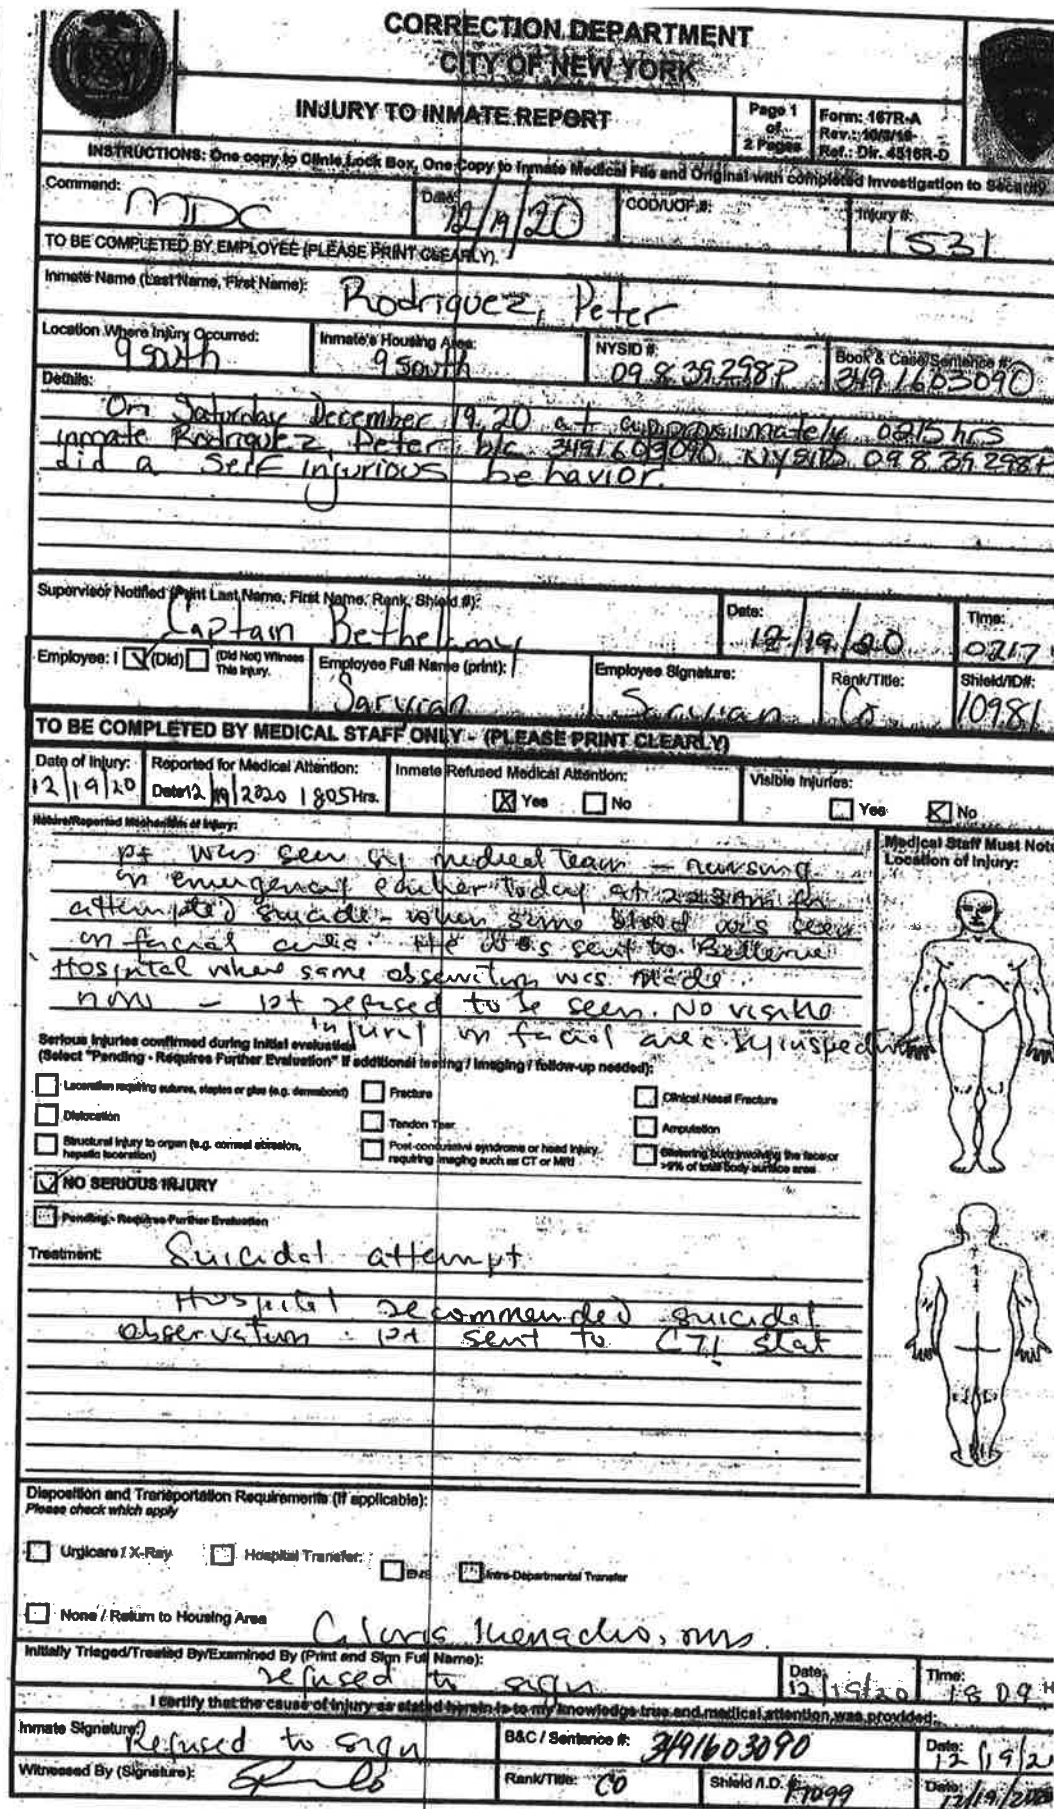 CORRECTION DEPARTMENT
CITY OF NEW YORK
INJURY TO INMATE REPORT
Page 1
of
2 Pages
Form: 167R-A
Rev.:
Ref.: Dir. 4516R-D
INSTRUCTIONS: One copy to Clinic Lock Box, One Copy to Inmate Medical File and Original with completed Investigation to Security.
Command: MDC
Date: 12/19/20
COD/UOF #:
Injury #: 1531
TO BE COMPLETED BY EMPLOYEE (PLEASE PRINT CLEARLY).
Inmate Name (Last Name, First Name): Rodriguez, Peter
Location Where Injury Occurred: 9 South
Inmate's Housing Area: 9 South
NYSID #: 09839298P
Book & Case/Sentence #: 3491603090
Details:
On Saturday December 19, 20 at approximately 0215 hrs
inmate Rodriguez, Peter b/c 3491603090 NYSID 09839298P
did a Self injurious behavior.
Supervisor Notified (Print Last Name, First Name, Rank, Shield #):
Captain Bethelamy
Date: 12/19/20
Time: 0217
Employee: I (Did) (Did Not) Witness This Injury.
Employee Full Name (print):
Employee Signature:
Rank/Title: CO
Shield/ID#: 10981
TO BE COMPLETED BY MEDICAL STAFF ONLY - (PLEASE PRINT CLEARLY)
Date of Injury: 12/19/20
Reported for Medical Attention: Date 12/19/2020 1805 Hrs.
Inmate Refused Medical Attention: X Yes No
Visible Injuries: Yes X No
Nature/Reported Mechanism of Injury:
pt was seen by medical team - nursing
in emergency earlier today at for
attempted suicide - when some blood was seen
on facial area. He was sent to Bellevue
Hospital where same observation was made.
now - pt refused to be seen. No visible
injury on facial area by inspection
Medical Staff Must Note
Location of Injury:
Serious Injuries confirmed during initial evaluation
(Select "Pending - Requires Further Evaluation" if additional testing / imaging / follow-up needed):
Laceration requiring sutures, staples or glue (e.g. dermabond)
Fracture
Clinical Nasal Fracture
Dislocation
Tendon Tear
Amputation
Structural injury to organ (e.g. corneal abrasion, hepatic laceration)
Post-concussive syndrome or head injury requiring imaging such as CT or MRI
Blistering burn involving the face or >9% of total body surface area
NO SERIOUS INJURY
Pending - Requires Further Evaluation
Treatment: Suicidal attempt
Hospital recommended suicidal
observation. pt sent to C71 stat
Disposition and Transportation Requirements (if applicable):
Please check which apply
Urgicare / X-Ray
Hospital Transfer:
EMS
Intra-Departmental Transfer
None / Return to Housing Area
Initially Triaged/Treated By/Examined By (Print and Sign Full Name):
refused to sign
Date: 12/19/20
Time: 1809 H
I certify that the cause of injury as stated herein is to my knowledge true and medical attention was provided.
Inmate Signature: Refused to sign
B&C / Sentence #: 3491603090
Date: 12/19/20
Witnessed By (Signature):
Rank/Title: CO
Shield /I.D. #:
Date: 12/19/2020